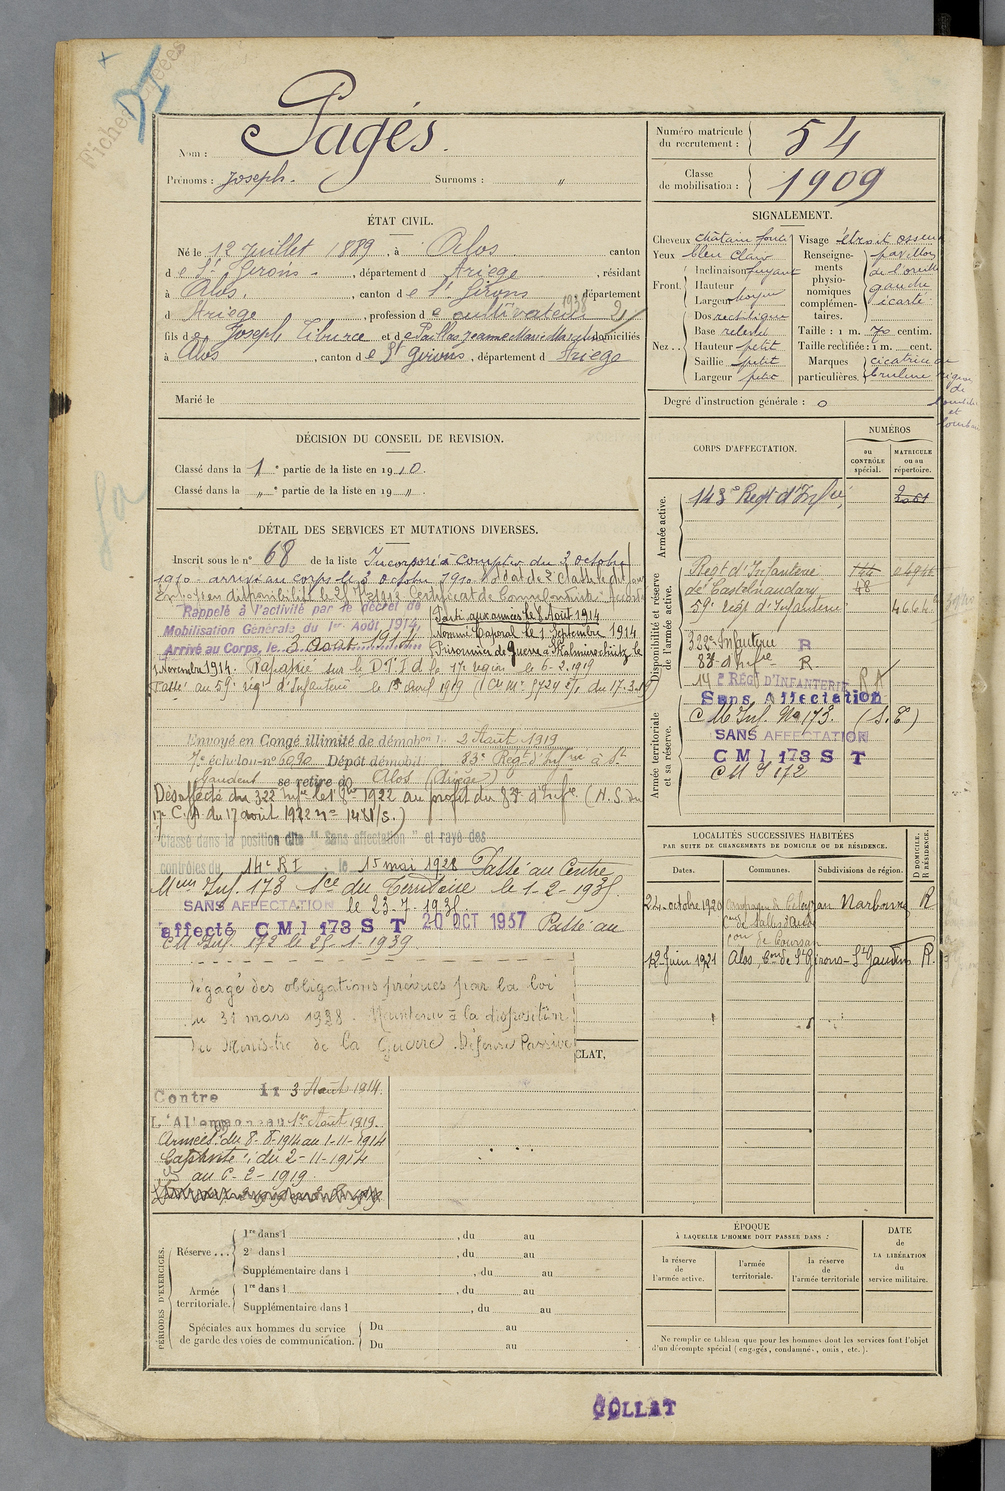 Fiche
DI
Nom : Pagés.
Prénoms : Joseph. Surnoms : "
Numéro matricule
du recrutement : 54
Classe
de mobilisation : 1909
ÉTAT CIVIL.
Né le 12 Juillet 1889, à Alos canton
de St Girons, département d Ariège, résidant
à Alos, canton de St Girons, département
d Ariège, profession de cultivateur
fils de Joseph Tiburce et de Paillas Jeanne Marie domiciliés
à Alos, canton de St Girons, département d Ariège
Marié le
SIGNALEMENT.
Cheveux châtain foncé
Yeux bleu clair
Front : Inclinaison fuyant
Hauteur
Largeur moyen
Nez : Dos rectiligne
Base relevé
Hauteur petit
Saillie petit
Largeur petit
Visage étroit osseux
Renseignements physionomiques complémentaires. pavillon
de l'oreille
gauche
écarté
Taille : 1 m. 70 centim.
Taille rectifiée : 1 m. cent.
Marques particulières. cicatrice de
brulure région
de
et
Degré d'instruction générale : 0
DÉCISION DU CONSEIL DE REVISION.
Classé dans la 1e partie de la liste en 1910.
Classé dans la " e partie de la liste en 19 " .
DÉTAIL DES SERVICES ET MUTATIONS DIVERSES.
Inscrit sous le n° 68 de la liste Incorporé à compter du 2 octobre
1910 arrivé au corps le 3 octobre 1910 Soldat de 2e classe
Certificat de Bonne Conduite Accordé
Rappelé à l'activité par le décret de
Mobilisation Générale du 1er Août 1914,
Arrivé au Corps, le 3 Août 1914
Parti aux armées le 8 Août 1914
Nommé Caporal le 1 Septembre 1914
Prisonnier de Guerre à le
1 Novembre 1914. Rapatrié sur le D.T.I de la 17e région le 6-2-1919
Passé au 59e régt d'Infanterie le 1er avril 1919 du 17-3-19)
Envoyé en Congé illimité de démobon le 2 Août 1919
7e échelon n° Dépôt démobil 83e Régt d'Infrie à St
Gaudens se retire à Alos (Ariège)
Désaffecté du 322 Infie le 1 1922 au profit du 83e d'Infie (N. S. du
17e C. A. du 17 août 1922 n° 1481/S.)
Classé dans la position dite " Sans affectation " et rayé des
contrôles du 14e R I le 15 mai 1928 Passé au Centre
Mob Inf. 173 Sce du Territoire le 1-2-1935
SANS AFFECTATION le 23-7-1935
affecté C M I 173 S T 20 OCT 1937 Passé au
CM Inf. 172 le 25-1-1939
Dégagé des obligations prévues par la loi
du 31 mars 1928. Maintenu à la disposition
du Ministre de la Guerre Défense Passive
CLAT.
Contre 3 Août 1914.
L'Allemagne au 1er Août 1919.
Armées : du 8-8-1914 au 1-11-1914
Captivité : du 2-11-1914
au 6-2-1919
CORPS D'AFFECTATION.
NUMÉROS
au CONTRÔLE spécial.
MATRICULE ou au répertoire.
Armée active.
143e Régt d'Infie
Disponibilité et réserve de l'armée active.
Régt d'Infanterie
de Castelnaudary
59e régt d'Infanterie
322e Infanterie R
83e d'Infie R.
14e RÉGt D'INFANTERIE R A
Sans Affectation
Armée territoriale et sa réserve.
C M Inf. No 173. (S.T.)
SANS AFFECTATION
C M I 173 S T
C M I 172
LOCALITÉS SUCCESSIVES HABITÉES
PAR SUITE DE CHANGEMENTS DE DOMICILE OU DE RÉSIDENCE.
Dates. Communes. Subdivisions de région. D DOMICILE. R RÉSIDENCE.
24 octobre 1920 Narbonne R
12 Juin 1921 Alos, Con de St Girons St Gaudens R.
PÉRIODES D'EXERCICES.
Réserve... 1re dans l , du au
2e dans l , du au
Supplémentaire dans l , du au
Armée territoriale. 1re dans l , du au
Supplémentaire dans l , du au
Spéciales aux hommes du service
de garde des voies de communication. Du au
Du au
ÉPOQUE
À LAQUELLE L'HOMME DOIT PASSER DANS :
la réserve de l'armée active.
l'armée territoriale.
la réserve de l'armée territoriale
DATE de LA LIBÉRATION du service militaire.
Ne remplir ce tableau que pour les hommes dont les services font l'objet
d'un décompte spécial (engagés, condamnés, omis, etc.).
COLLAT